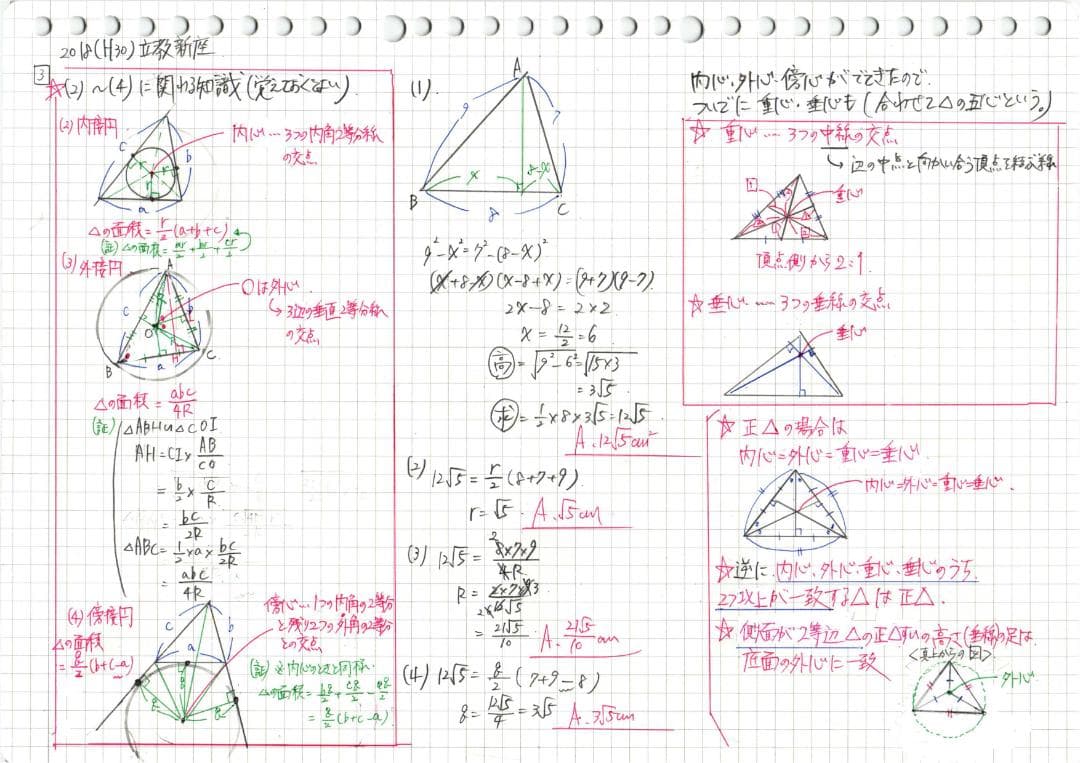 2018(H30)立教新座
3
☆(2)～(4)に関わる知識(覚えておくとよい)
(2)内接円
c
b
r
r
r
a
内心…3つの内角2等分線
の交点
△の面積=r/2(a+b+c)
(証)△の面積=ar/2+br/2+cr/2
(3)外接円
A
c
b
O
H
B
a
C
Oは外心
↳3辺の垂直2等分線
の交点
△の面積=abc/4R
(証)
△ABH∽△COI
AH=CI×AB/CO
=b/2×c/R
=bc/2R
△ABC=1/2×a×bc/2R
=abc/4R
(4)傍接円
△の面積
=8/2(b+c-a)
c
b
a
傍心…1つの内角の2等分
と残り2つの外角の2等分
との交点
(証)内心のときと同様
△の面積=b8/2+c8/2-a8/2
=8/2(b+c-a)
(1)
A
9
7
x
8-x
B
8
C
9²-x²=7²-(8-x)²
(x+8-x)(x-8+x)=(9+7)(9-7)
2x-8=2×2
x=12/2=6
高=√9²-6²=√15×3
=3√5
求=1/2×8×3√5=12√5
A.12√5cm²
(2)12√5=r/2(8+7+9)
r=√5.
A.√5cm
(3)12√5=8×7×9/4R
=21√5/10
A.21√5/10cm
(4)12√5=8/2(7+9-8)
8=12√5/4=3√5
A.3√5cm
内心、外心、傍心がでてきたので、
ついでに重心、垂心も(合わせて△の五心という。)
☆重心…3つの中線の交点
↳辺の中点と向かい合う頂点を結ぶ線
重心
頂点側から2:1.
☆垂心…3つの垂線の交点
垂心
☆正△の場合は
内心=外心=重心=垂心
内心=外心=重心=垂心.
☆逆に、内心、外心、重心、垂心のうち
2つ以上が一致する△は正△.
☆側面が2等辺△の正△すいの高さ(垂線)の足は
底面の外心に一致
<真上からの図>
外心